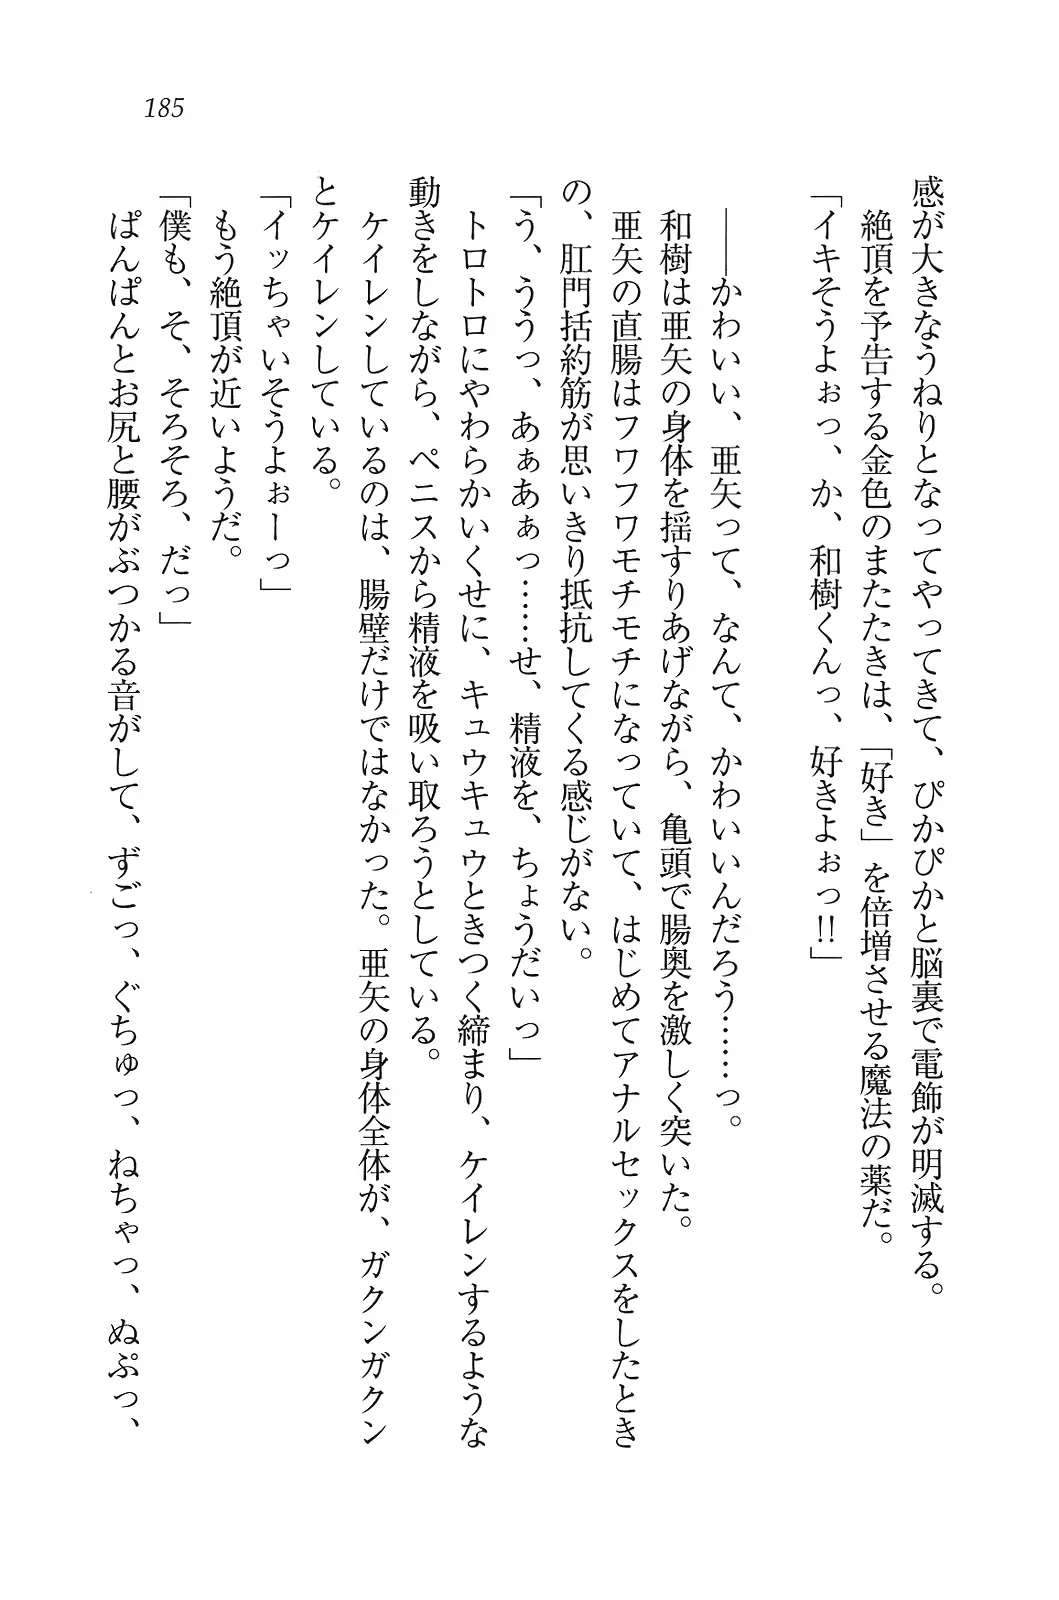 185
感が大きなうねりとなってやってきて、ぴかぴかと脳裏で電飾が明滅する。
絶頂を予告する金色のまたたきは、「好き」を倍増させる魔法の薬だ。
「イキそうよぉっ、か、和樹くんっ、好きよぉっ!!」
――かわいい、亜矢って、なんて、かわいいんだろう……っ。
和樹は亜矢の身体を揺すりあげながら、亀頭で腸奥を激しく突いた。
亜矢の直腸はフワフワモチモチになっていて、はじめてアナルセックスをしたとき
の、肛門括約筋が思いきり抵抗してくる感じがない。
「う、ううっ、あぁあぁっ……せ、精液を、ちょうだいっ」
トロトロにやわらかいくせに、キュウキュウときつく締まり、ケイレンするような
動きをしながら、ペニスから精液を吸い取ろうとしている。
ケイレンしているのは、腸壁だけではなかった。亜矢の身体全体が、ガクンガクン
とケイレンしている。
「イッちゃいそうよぉーっ」
もう絶頂が近いようだ。
「僕も、そ、そろそろ、だっ」
ぱんぱんとお尻と腰がぶつかる音がして、ずごっ、ぐちゅっ、ねちゃっ、ぬぷっ、